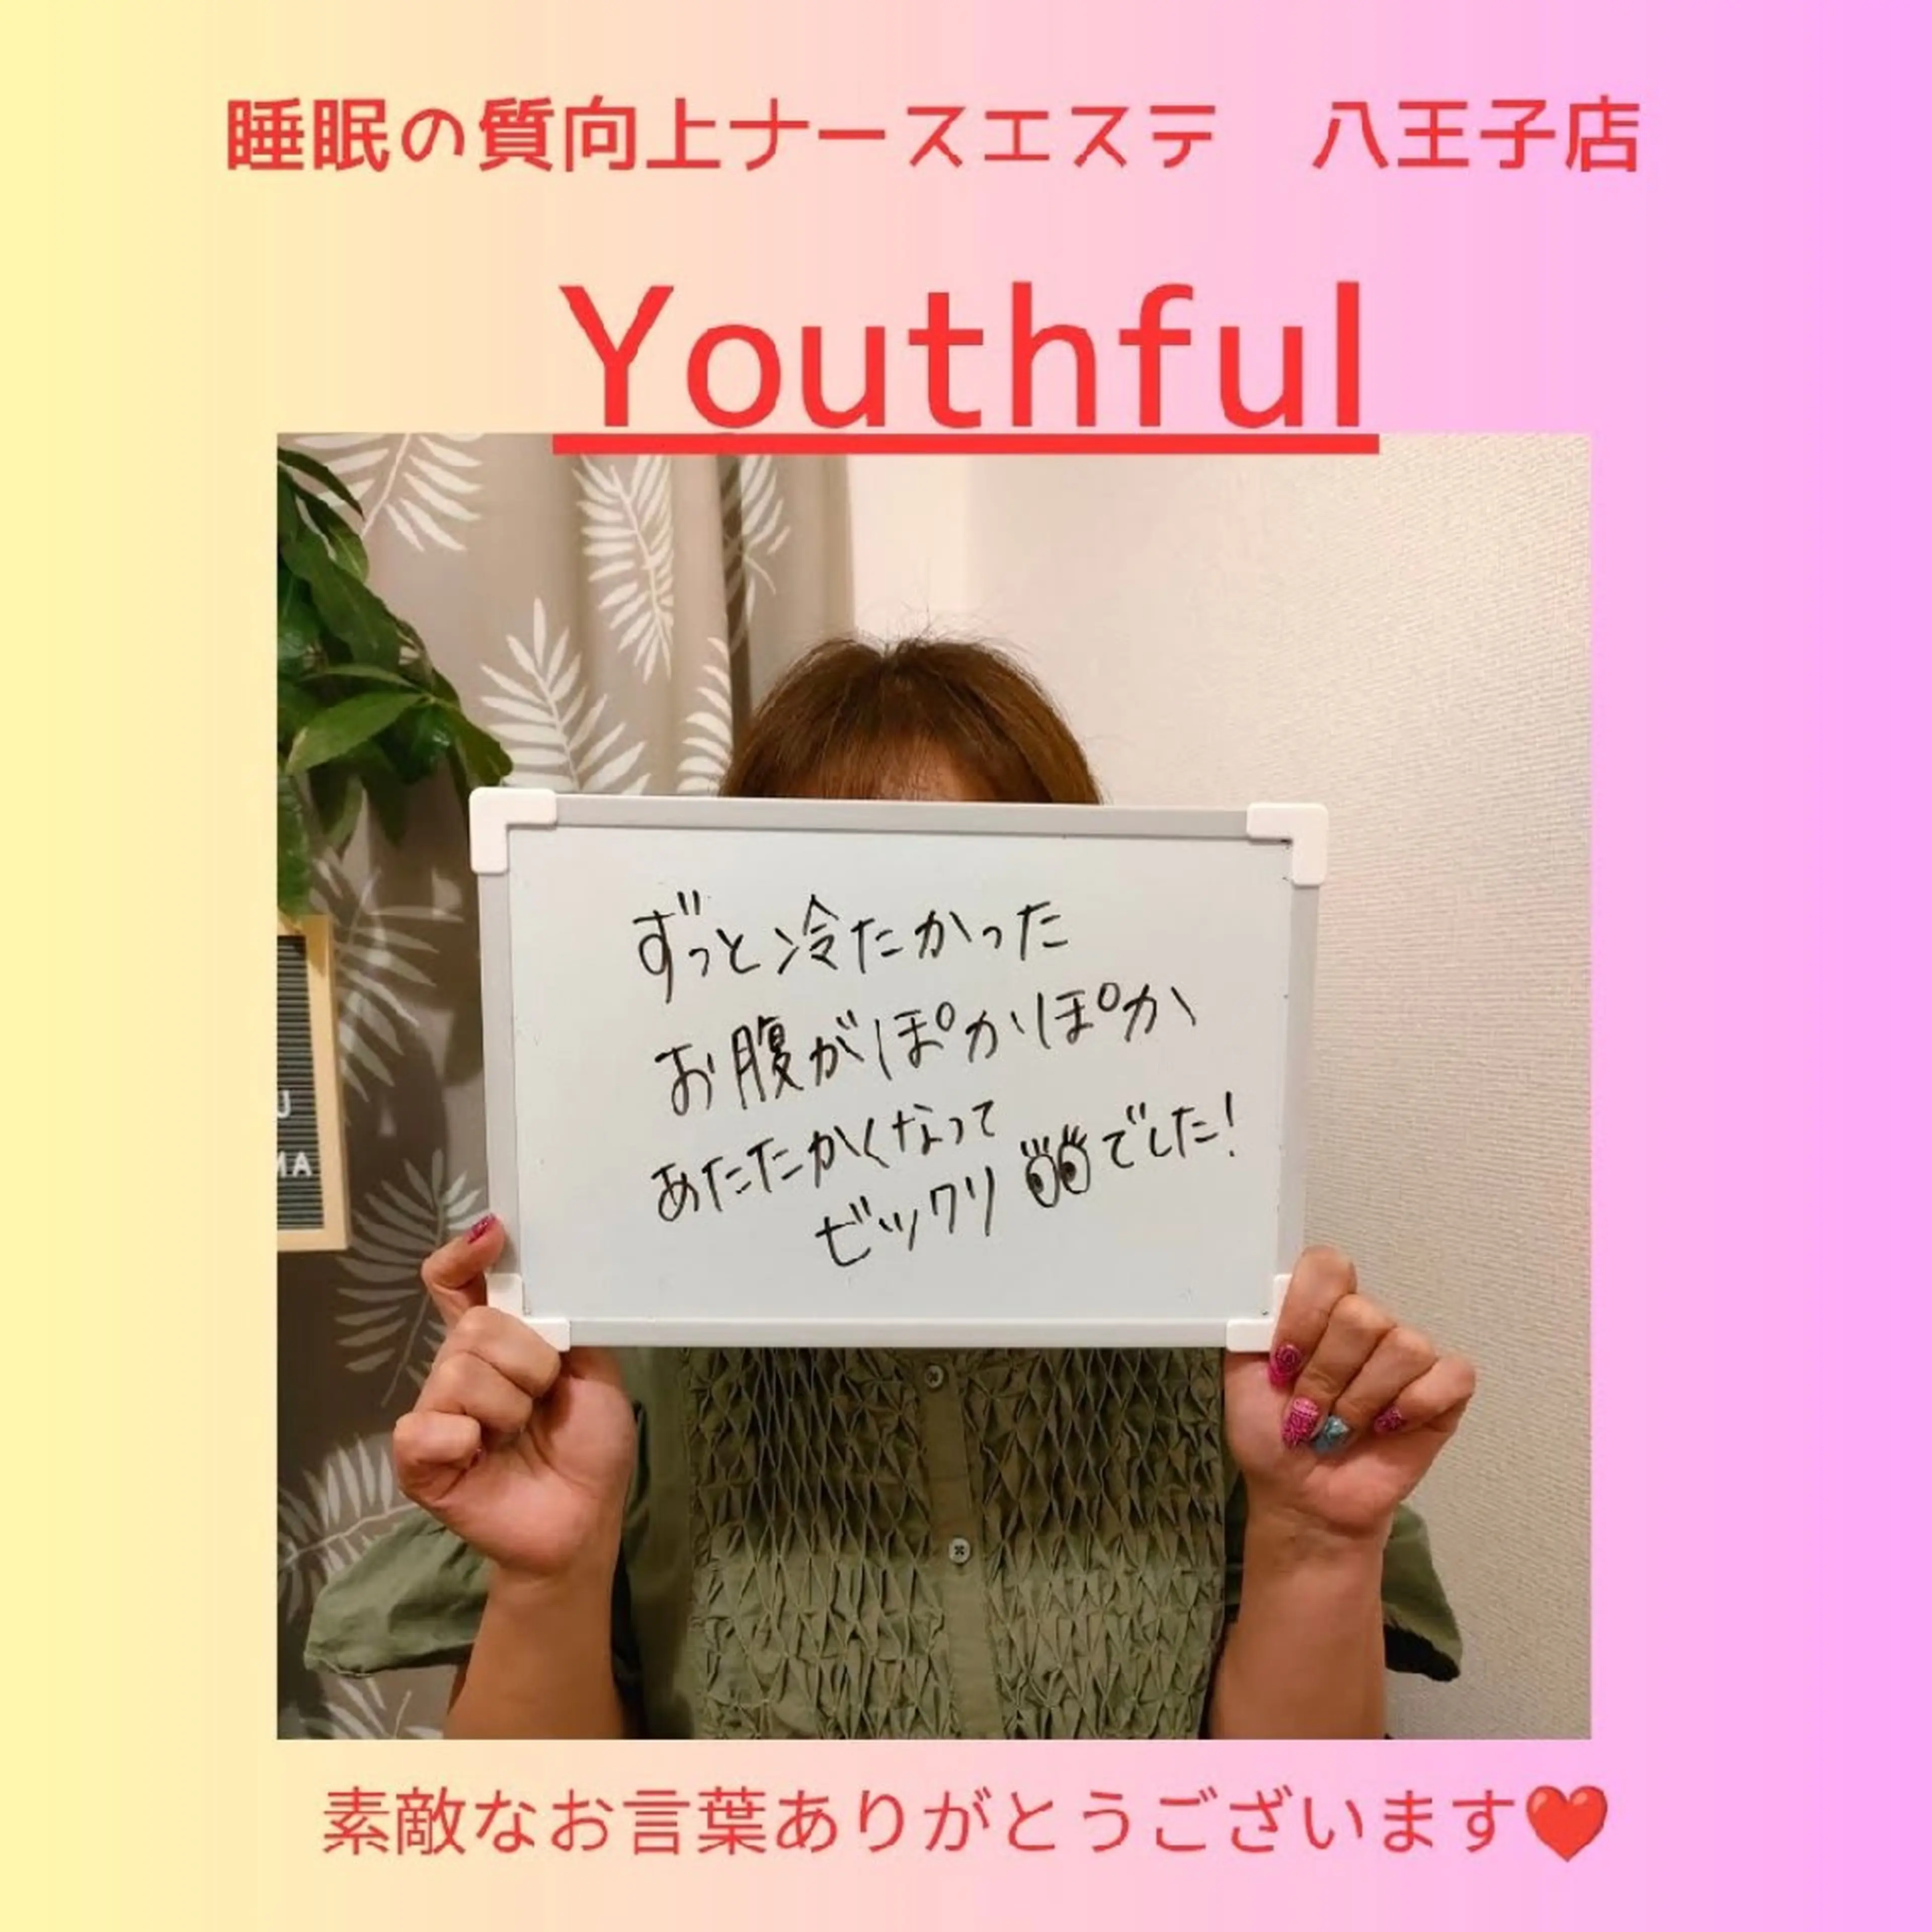 睡眠の質向上ナースエステ　八王子店
Youthful
ずっと冷たかった
お腹がぽかぽか
あたたかくなって
ビックリ👀でした!
U
MA
素敵なお言葉ありがとうございます❤️